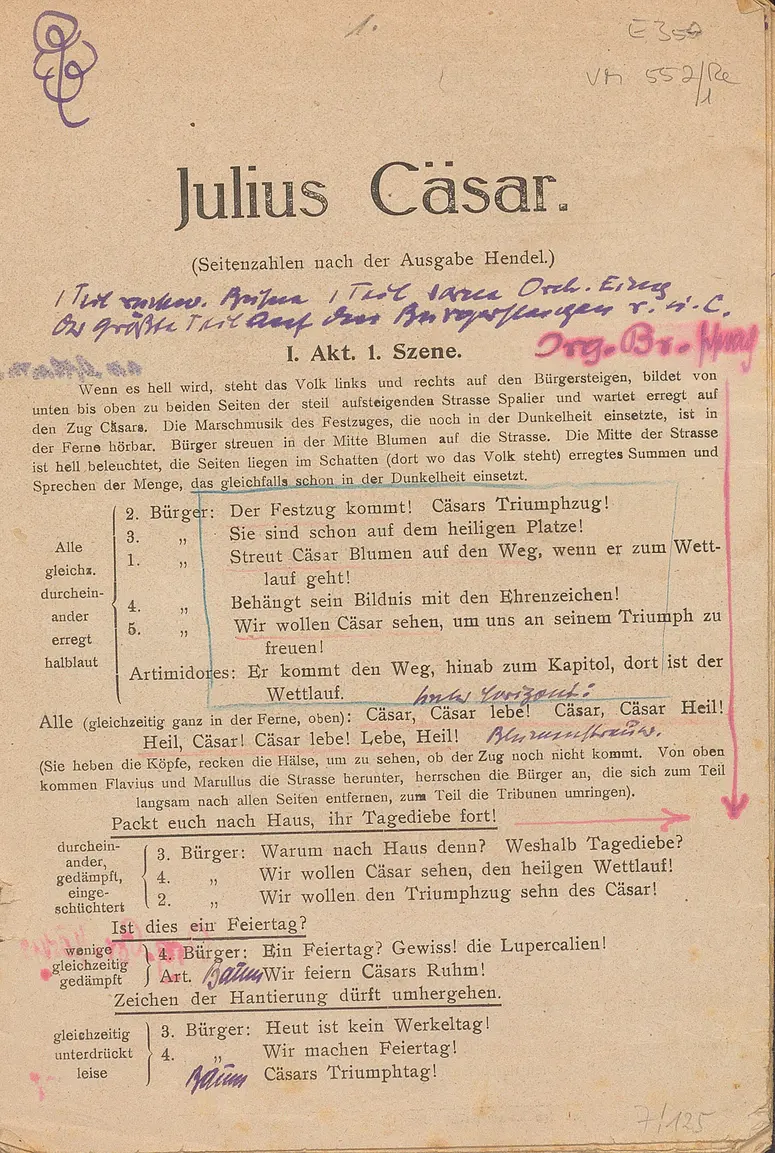 1.
E 350
VM 552/Re
1
Julius Cäsar.
(Seitenzahlen nach der Ausgabe Hendel.)
1 Teil Bühne 1 Teil vorne Orch. Eing
Der größte Teil auf den r. u. l.
Org. Br.
I. Akt. 1. Szene.
Wenn es hell wird, steht das Volk links und rechts auf den Bürgersteigen, bildet von
unten bis oben zu beiden Seiten der steil aufsteigenden Strasse Spalier und wartet erregt auf
den Zug Cäsars. Die Marschmusik des Festzuges, die noch in der Dunkelheit einsetzte, ist in
der Ferne hörbar. Bürger streuen in der Mitte Blumen auf die Strasse. Die Mitte der Strasse
ist hell beleuchtet, die Seiten liegen im Schatten (dort wo das Volk steht) erregtes Summen und
Sprechen der Menge, das gleichfalls schon in der Dunkelheit einsetzt.
Alle
gleichz.
durchein-
ander
erregt
halblaut
2. Bürger: Der Festzug kommt! Cäsars Triumphzug!
3. „ Sie sind schon auf dem heiligen Platze!
1. „ Streut Cäsar Blumen auf den Weg, wenn er zum Wett-
lauf geht!
4. „ Behängt sein Bildnis mit den Ehrenzeichen!
5. „ Wir wollen Cäsar sehen, um uns an seinem Triumph zu
freuen!
Artimidores: Er kommt den Weg, hinab zum Kapitol, dort ist der
Wettlauf.
Alle (gleichzeitig ganz in der Ferne, oben): Cäsar, Cäsar lebe! Cäsar, Cäsar Heil!
Heil, Cäsar! Cäsar lebe! Lebe, Heil!
(Sie heben die Köpfe, recken die Hälse, um zu sehen, ob der Zug noch nicht kommt. Von oben
kommen Flavius und Marullus die Strasse herunter, herrschen die Bürger an, die sich zum Teil
langsam nach allen Seiten entfernen, zum Teil die Tribunen umringen).
Packt euch nach Haus, ihr Tagediebe fort!
durchein-
ander,
gedämpft,
einge-
schüchtert
3. Bürger: Warum nach Haus denn? Weshalb Tagediebe?
4. „ Wir wollen Cäsar sehen, den heilgen Wettlauf!
2. „ Wir wollen den Triumphzug sehn des Cäsar!
Ist dies ein Feiertag?
wenige
gleichzeitig
gedämpft
4. Bürger: Ein Feiertag? Gewiss! die Lupercalien!
Art. Baum Wir feiern Cäsars Ruhm!
Zeichen der Hantierung dürft umhergehen.
gleichzeitig
unterdrückt
leise
3. Bürger: Heut ist kein Werkeltag!
4. „ Wir machen Feiertag!
Baum Cäsars Triumphtag!
7/125